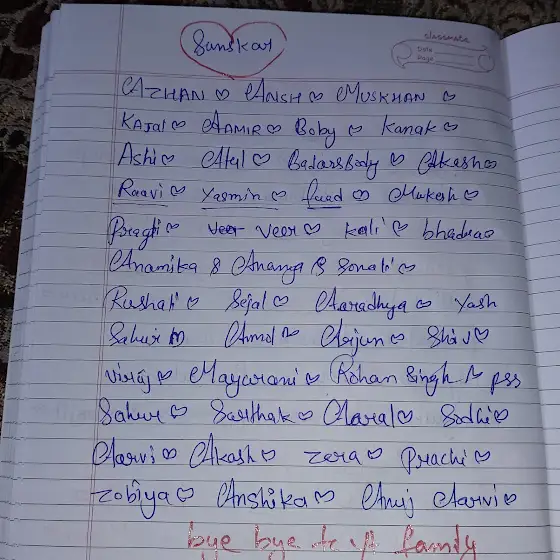 Sanskar
classmate
Date
Page
AZHAN ♡ ANSH ♡ MUSKHAN ♡
KAJal ♡ AAMIR ♡ Boby ♡ Kanak ♡
Ashi ♡ Atul ♡ Badarsbody ♡ Akash ♡
Raavi ♡ Yasmin ♡ fuad ♡ Mukesh ♡
Pragti ♡ veer veer ♡ kali ♡ bhadra
Anamika & Ananya & Sonali ♡
Rushali ♡ Sejal ♡ Aaradhya ♡ Yash
Sahur Anmol Arjun ♡ Shiv ♡
viraj ♡ Mayarani ♡ Rohan Singh pss
Sahur ♡ Sarthak ♡ Aaral ♡ Sodhi ♡
Aarvi ♡ Akash ♡ zara ♡ Prachi ♡
zobiya ♡ Anshika ♡ Anuj Aarvi ♡
bye bye family